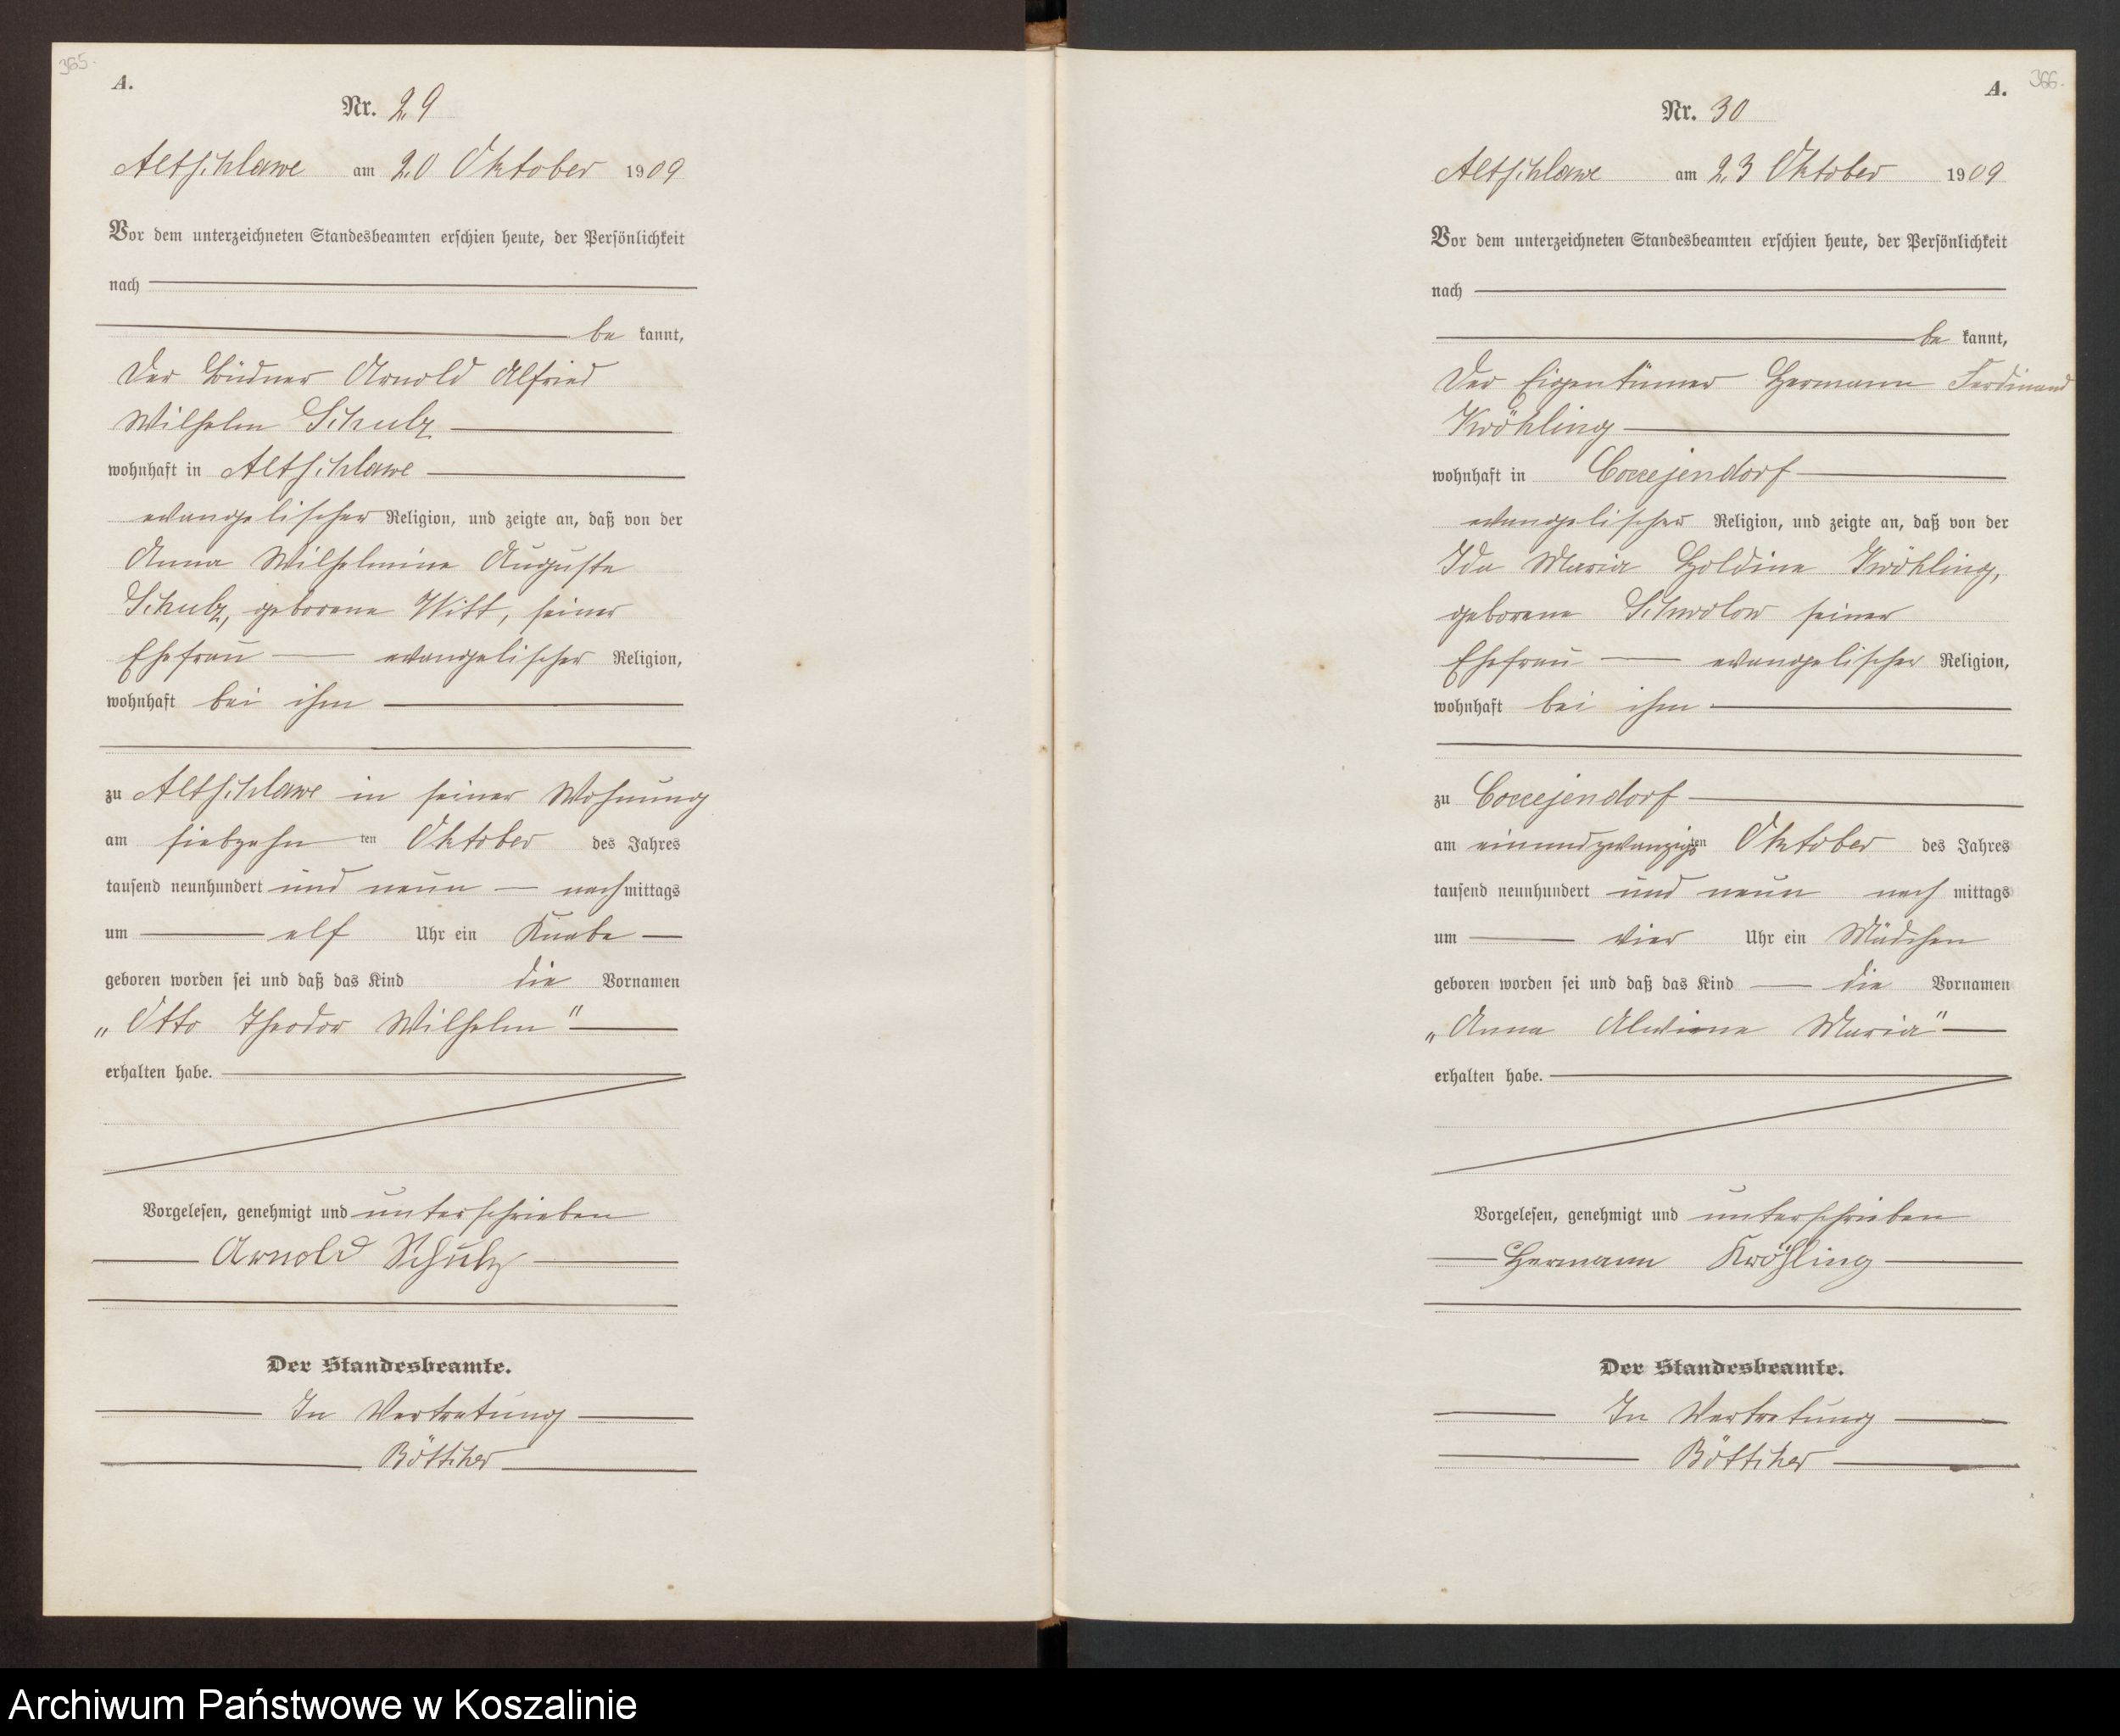 365.
A.
Nr. 29
Altschlawe am 20 Oktober 1909
Vor dem unterzeichneten Standesbeamten erschien heute, der Persönlichkeit
nach
be kannt,
Der Büdner Arnold Alfried
Wilhelm Schulz
wohnhaft in Altschlawe
evangelischer Religion, und zeigte an, daß von der
Anna Wilhelmine Auguste
Schulz, geborene Witt, seiner
Ehefrau evangelischer Religion,
wohnhaft bei ihm
zu Altschlawe in seiner Wohnung
am siebzehn ten Oktober des Jahres
tausend neunhundert und neun nachmittags
um elf Uhr ein Knabe
geboren worden sei und daß das Kind die Vornamen
„Otto Theodor Wilhelm"
erhalten habe.
Vorgelesen, genehmigt und unterschrieben
Arnold Schulz
Der Standesbeamte.
In Vertretung
Böttcher
366.
A.
Nr. 30
Altschlawe am 23 Oktober 1909
Vor dem unterzeichneten Standesbeamten erschien heute, der Persönlichkeit
nach
be kannt,
Der Eigentümer Hermann Ferdinand
Kröhling
wohnhaft in Coccejendorf
evangelischer Religion, und zeigte an, daß von der
Ida Maria Holdine Kröhling,
geborene Schwolow seiner
Ehefrau evangelischer Religion,
wohnhaft bei ihm
zu Coccejendorf
am einundzwanzigsten Oktober des Jahres
tausend neunhundert und neun nach mittags
um vier Uhr ein Mädchen
geboren worden sei und daß das Kind die Vornamen
„Anna Alwiene Maria"
erhalten habe.
Vorgelesen, genehmigt und unterschrieben
Hermann Kröhling
Der Standesbeamte.
In Vertretung
Böttcher
Archiwum Państwowe w Koszalinie